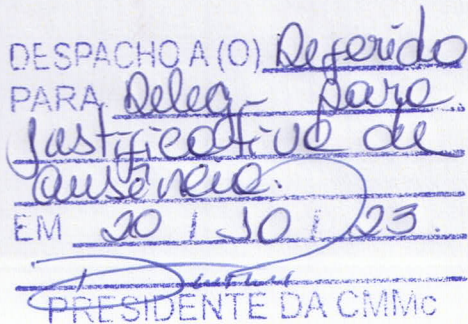 DESPACHO A (O) Deferido
PARA Deleg- para
justificativa de
ausência.
EM 20 / 10 / 23.
PRESIDENTE DA CMMc